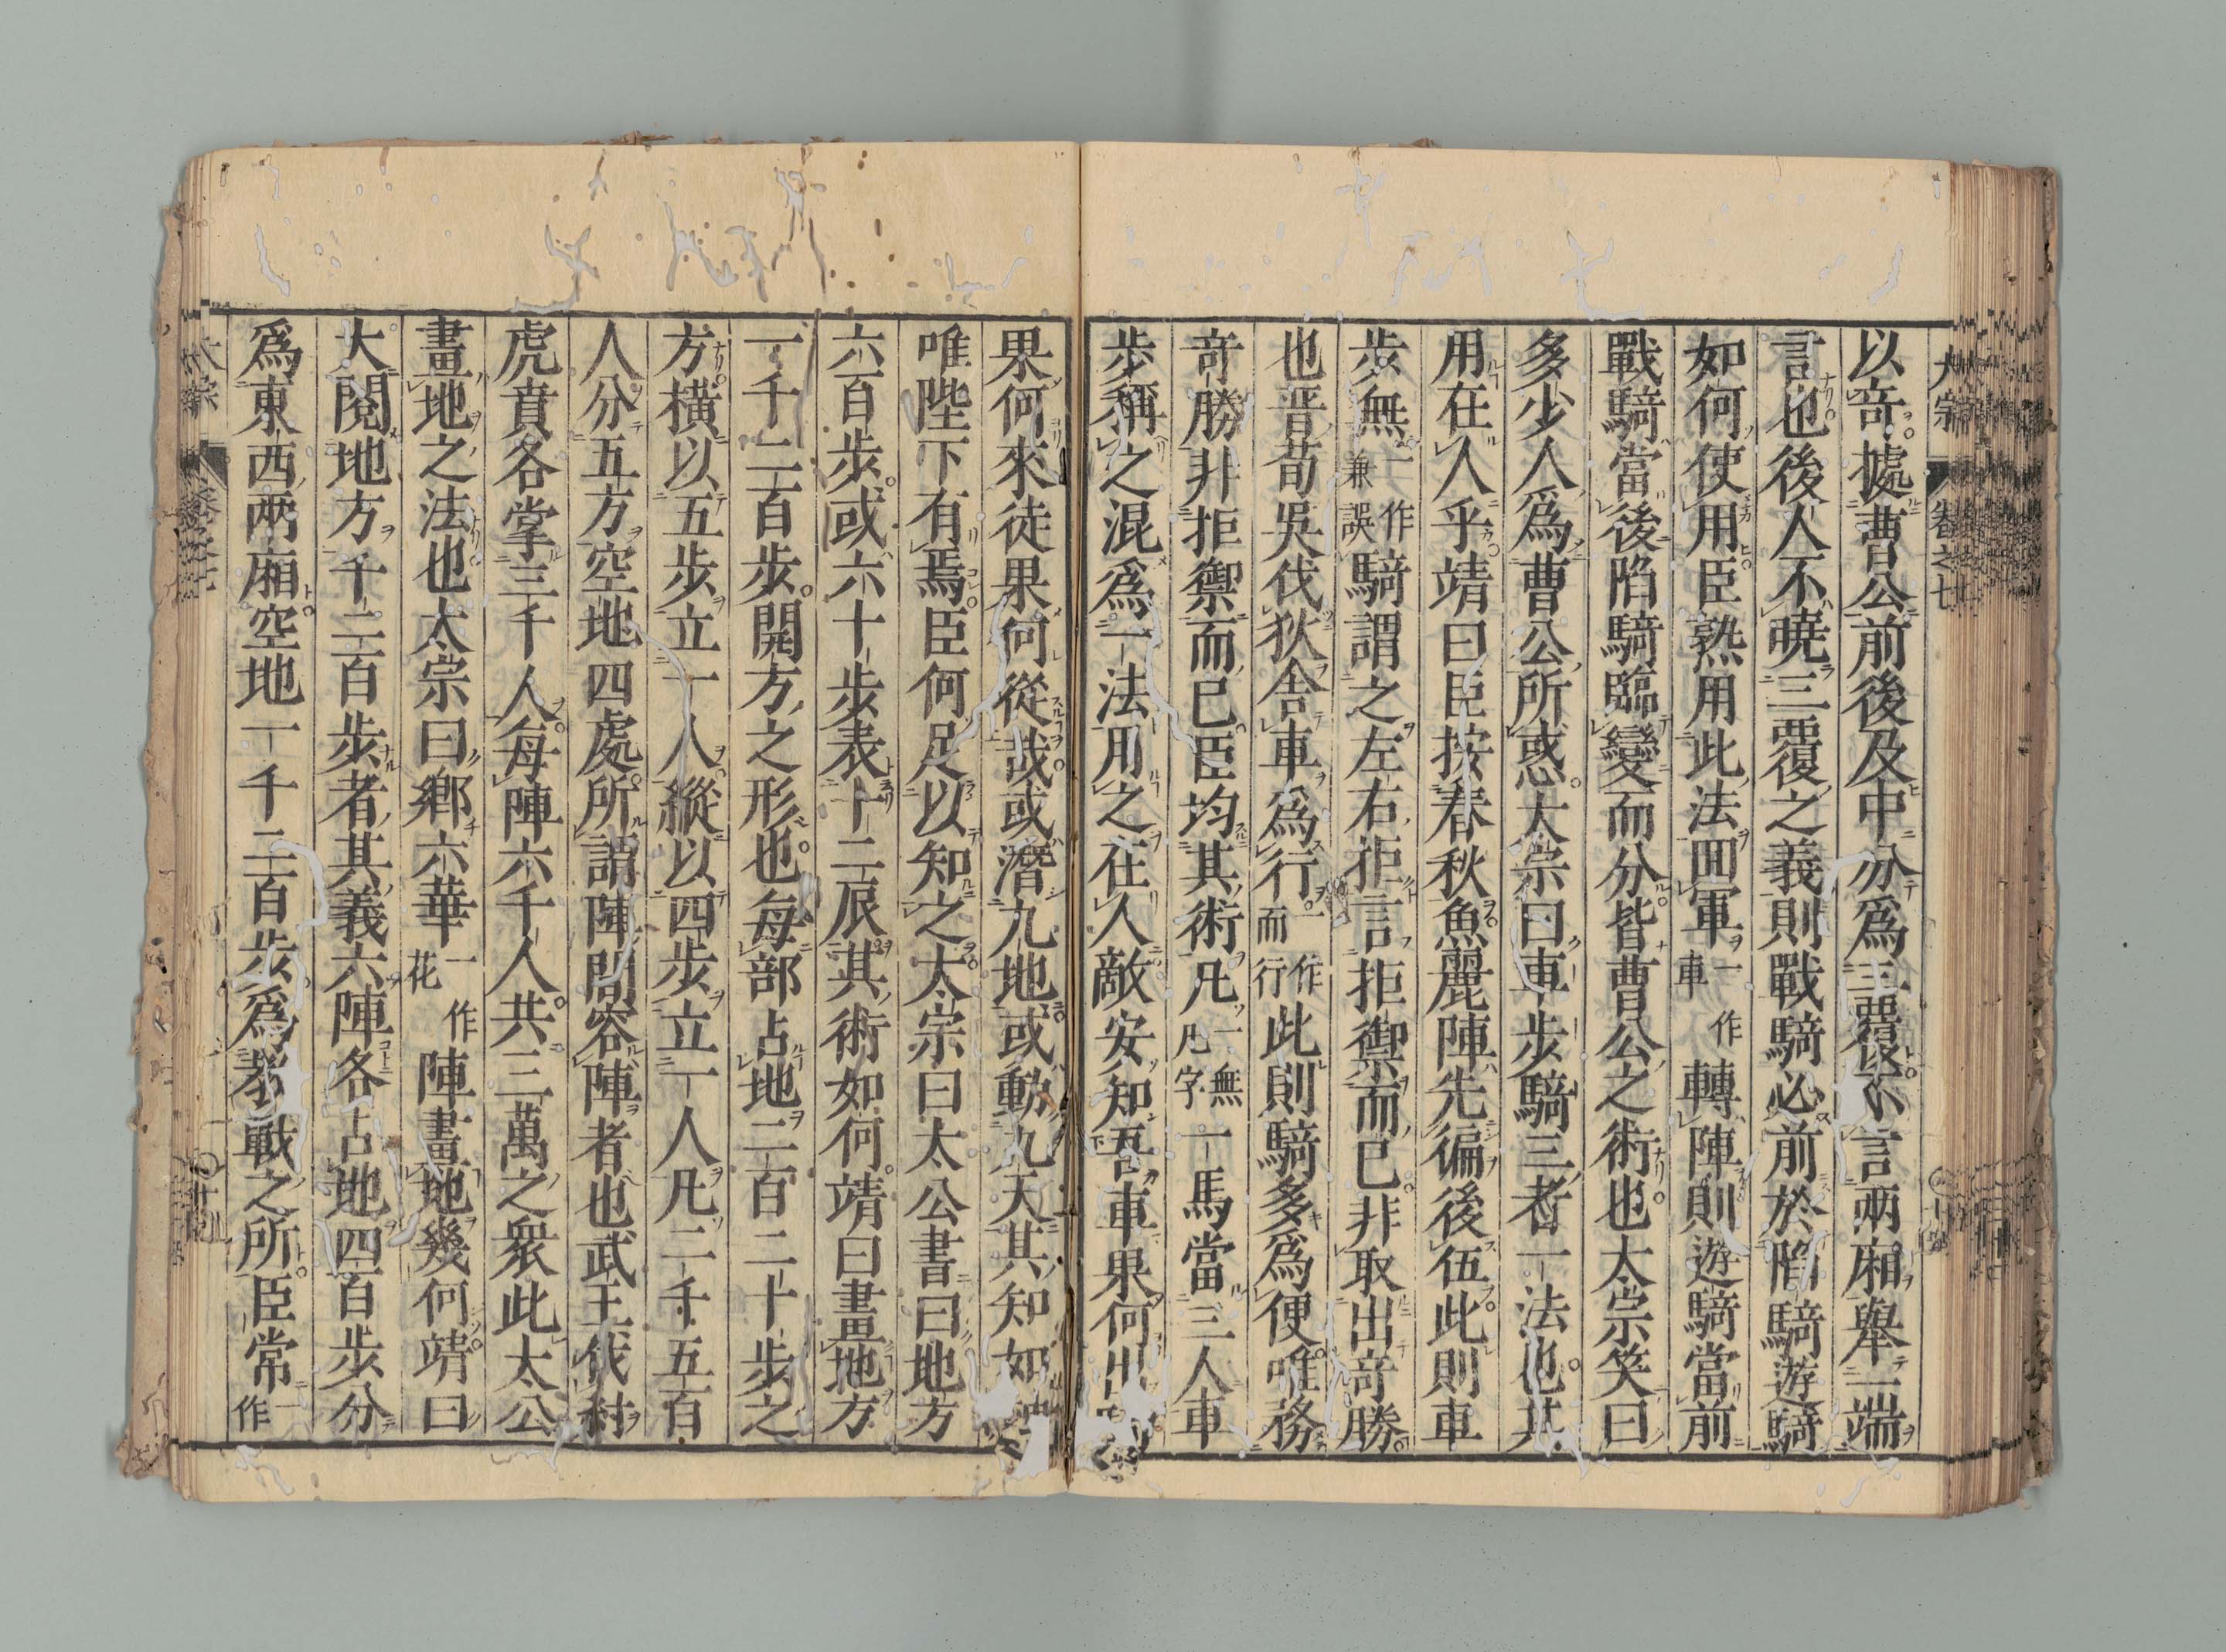 以竒據曹公前後及中分爲三覆不言兩廂舉一端
言也後人不曉三覆之義則戰騎必前於陷騎遊騎
如何使用臣熟用此法囬軍一作車轉陣則遊騎當前
戰騎當後陷騎臨變而分皆曹公之術也太宗笑曰
多少人爲曹公所惑太宗曰車步騎三者一法也其
用在人人乎靖曰臣按春秋魚麗陣先偏後伍此則車
步無一作兼誤騎謂之左右拒言拒禦而已非取出竒勝
也晋荀吳伐狄舎車爲行一作而行此則騎多爲便唯務
竒勝非拒禦而已臣均其術凡一無凡字一馬當三人車
步稱之混爲一法用之在人敵安知吾車果何出
果何來徒果何從哉或潛九地或動九天其知如
唯陛下有焉臣何足以知之太宗曰太公書曰地方
六百步或六十步表十二辰其術如何靖曰畫地方
一千二百步開方之形也每部占地二百二十步之
方橫以五步立一人縱以四步立一人凡二千五百
人分五方空地四處所謂陣間容陣者也武王伐紂
虎賁各掌三千人每陣六千人共三萬之衆此太公
畫地之法也太宗曰鄉六華一作花陣畫地幾何靖曰
大閱地方千二百步者其義六陣各占地四百步分
爲東西兩廂空地一千二百步爲教戰之所臣常一作
卷之七